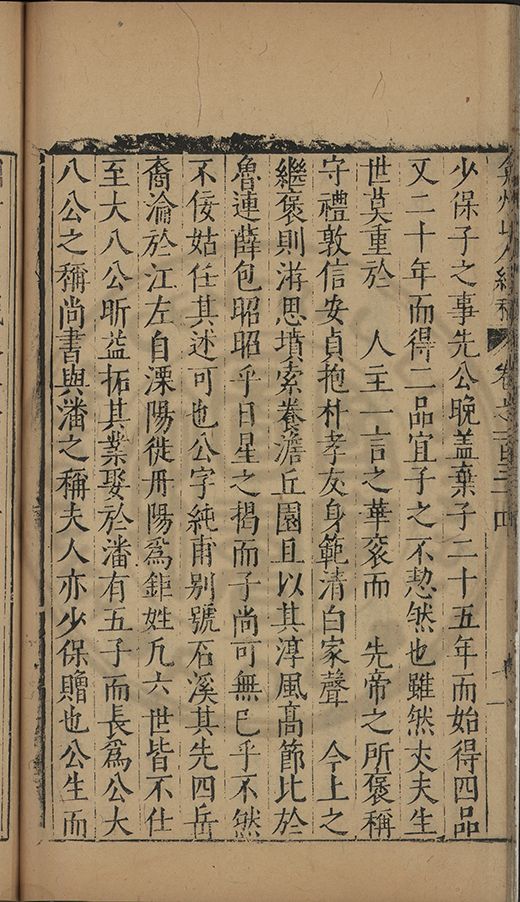 少保子之事先公晚盖棄子二十五年而始得四品
又二十年而得二品宜子之不恝然也雖然丈夫生
世莫重於　人主一言之華衮而　先帝之所褒稱
守禮敦信安貞抱朴孝友身範清白家聲　今上之
繼褒則游思墳索養澹丘園且以其淳風高節比於
魯連薛包昭昭乎日星之揭而子尚可無已乎不然
不佞姑任其述可也公字純甫别號石溪其先四岳
裔淪於江左自溧陽徙丹陽爲鉅姓凡六世皆不仕
至大八公昕益拓其業娶於潘有五子而長爲公大
八公之稱尚書與潘之稱夫人亦少保贈也公生而